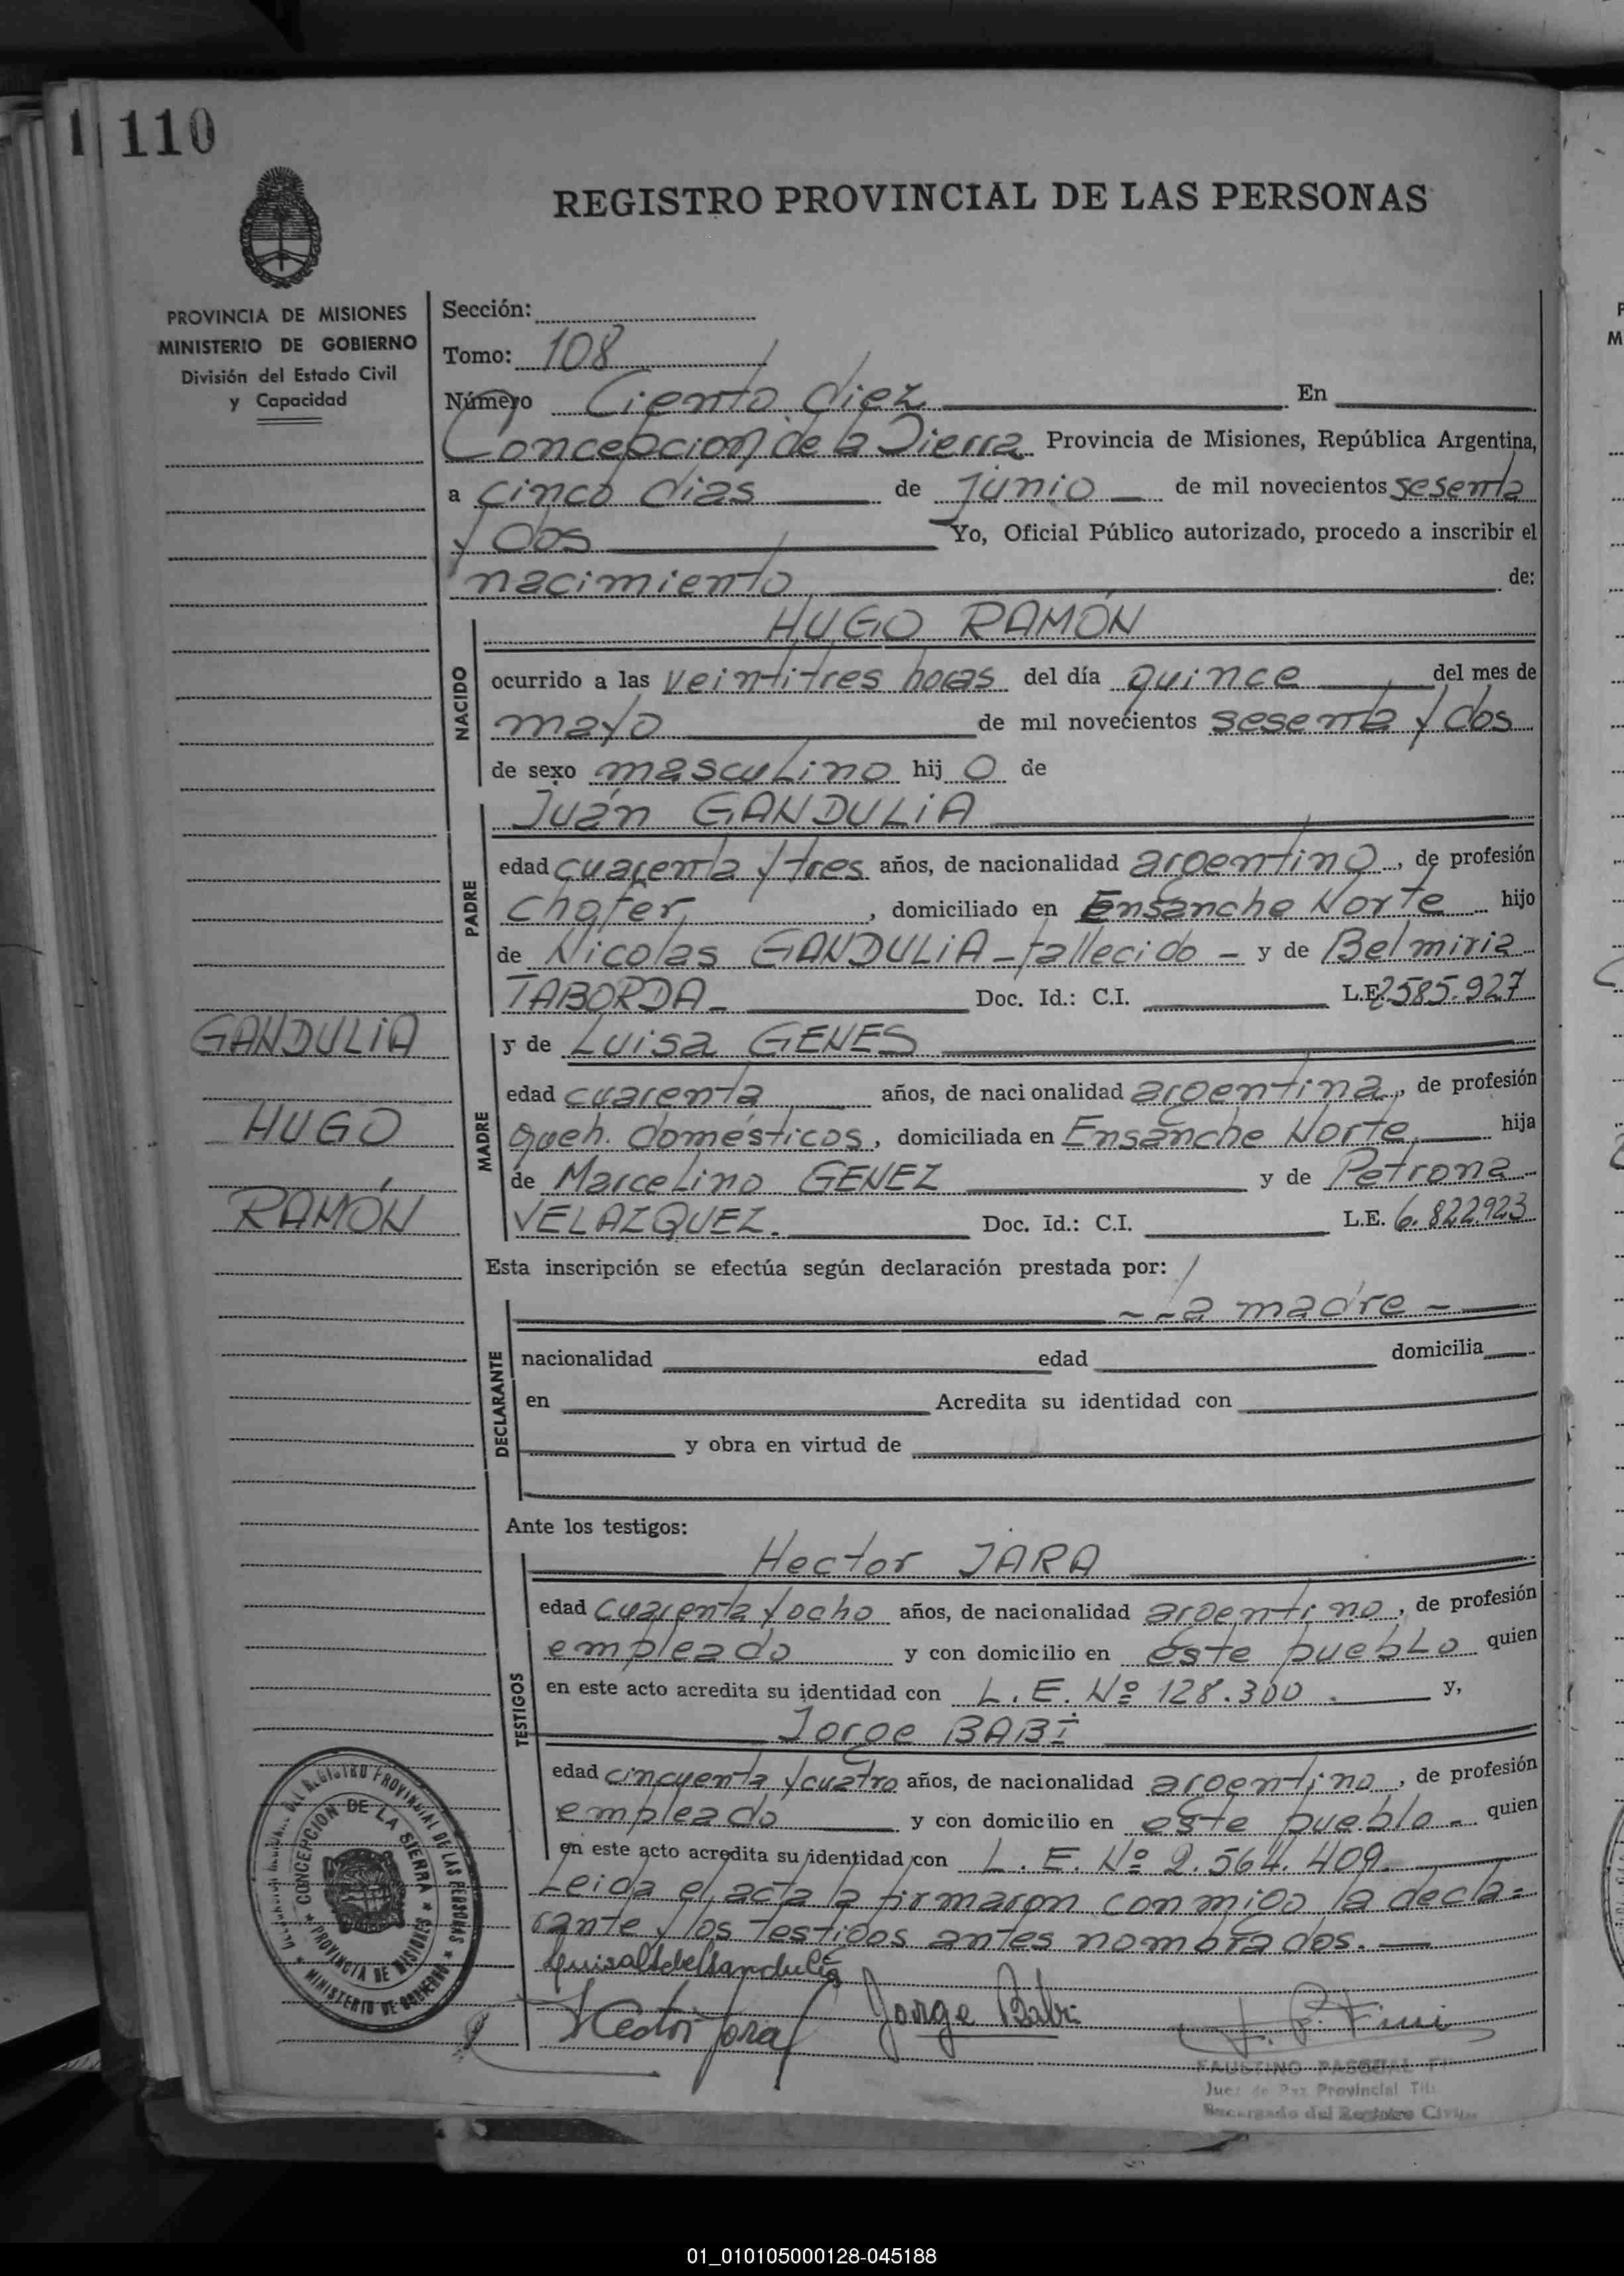 110
REGISTRO PROVINCIAL DE LAS PERSONAS
PROVINCIA DE MISIONES
MINISTERIO DE GOBIERNO
División del Estado Civil
y Capacidad
Sección:
Tomo: 108
Número Ciento diez En
Concepcion de la Sierra Provincia de Misiones, República Argentina,
a cinco dias de junio de mil novecientos sesenta
y dos Yo, Oficial Público autorizado, procedo a inscribir el
nacimiento de:
NACIDO
HUGO RAMÓN
ocurrido a las veintitres horas del día quince del mes de
mayo de mil novecientos sesenta y dos
de sexo masculino hij o de
PADRE
Juán GANDULIA
edad cuarenta y tres años, de nacionalidad argentino, de profesión
chofer, domiciliado en Ensanche Norte hijo
de Nicolas GANDULIA - fallecido - y de Belmiria
TABORDA - Doc. Id.: C.I. L.E. 2585.927
GANDULIA
HUGO
RAMÓN
MADRE
y de Luisa GENES
edad cuarenta años, de nacionalidad argentina, de profesión
queh. domésticos, domiciliada en Ensanche Norte, hija
de Marcelino GENEZ y de Petrona
VELAZQUEZ. Doc. Id.: C.I. L.E. 6.822.923
Esta inscripción se efectúa según declaración prestada por:
DECLARANTE
- la madre -
nacionalidad edad domicilia
en Acredita su identidad con
y obra en virtud de
Ante los testigos:
TESTIGOS
Hector JARA
edad cuarenta y ocho años, de nacionalidad argentino, de profesión
empleado y con domicilio en éste pueblo quien
en este acto acredita su identidad con L. E. Nº 128.300. y,
Jorge BABI
edad cincuenta y cuatro años, de nacionalidad argentino, de profesión
empleado y con domicilio en éste pueblo - quien
en este acto acredita su identidad con L. E. Nº 2.564.409.
Leida el acta la firmaron conmigo la decla=
rante y los testigos antes nombrados. —
Hector Jara
Jorge Babi
F. P. Fini
FAUSTINO PASCUAL
Juez de Paz Provincial
Encargado del Registro Civil
REGISTRO PROVINCIAL DE LAS PERSONAS
MINISTERIO DE GOBIERNO
CONCEPCION DE LA SIERRA
PROVINCIA DE MISIONES
01_010105000128-045188